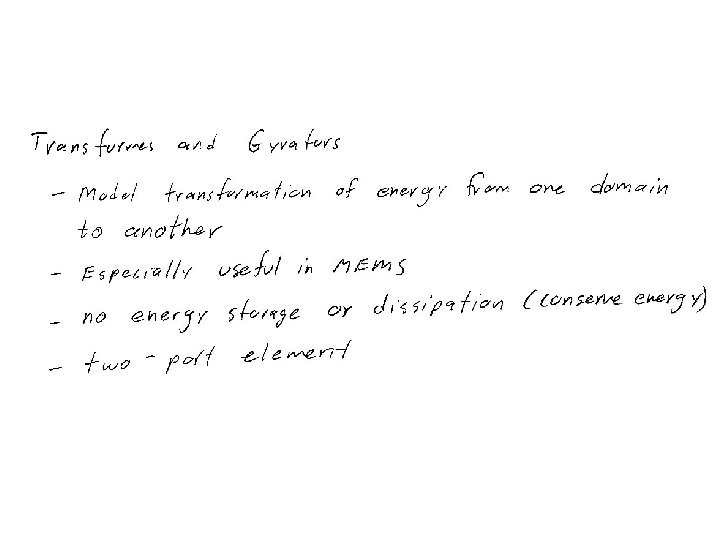 Transformes and Gyrators
- Model transformation of energy from one domain
to another
- Especially useful in MEMS
- no energy storage or dissipation (conserve energy)
- two-port element